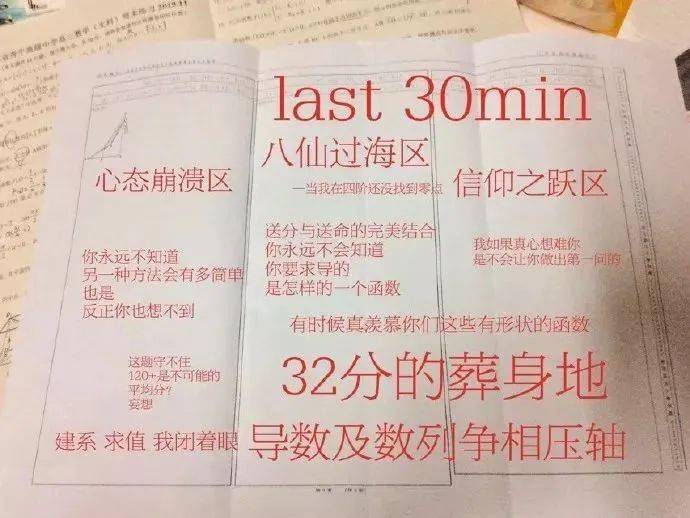 last 30min
八仙过海区
—当我在四阶还没找到零点
心态崩溃区
信仰之跃区
你永远不知道
另一种方法会有多简单
也是
反正你也想不到
送分与送命的完美结合
你永远不会知道
你要求导的
是怎样的一个函数
我如果真心想难你
是不会让你做出第一问的
有时候真羡慕你们这些有形状的函数
这题守不住
120+是不可能的
平均分?
妄想
32分的葬身地
建系 求值 我闭着眼
导数及数列争相压轴